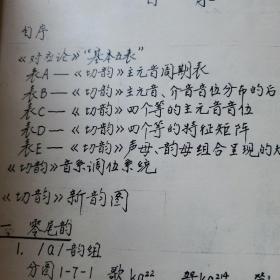 自序
《对应论》"基本五表"
表A—《切韵》主元音周期表
表B—《切韵》主元音、介音音位分布的后
表C—《切韵》四个等的主元音音位
表D—《切韵》四个等的特征矩阵
表E—《切韵》声母、韵母组合呈现的
《切韵》音系调位系统
《切韵》新韵图
一 零尾韵
1. /a/-韵组
分图1-7-1 歌 ka²² ka²¹⁴